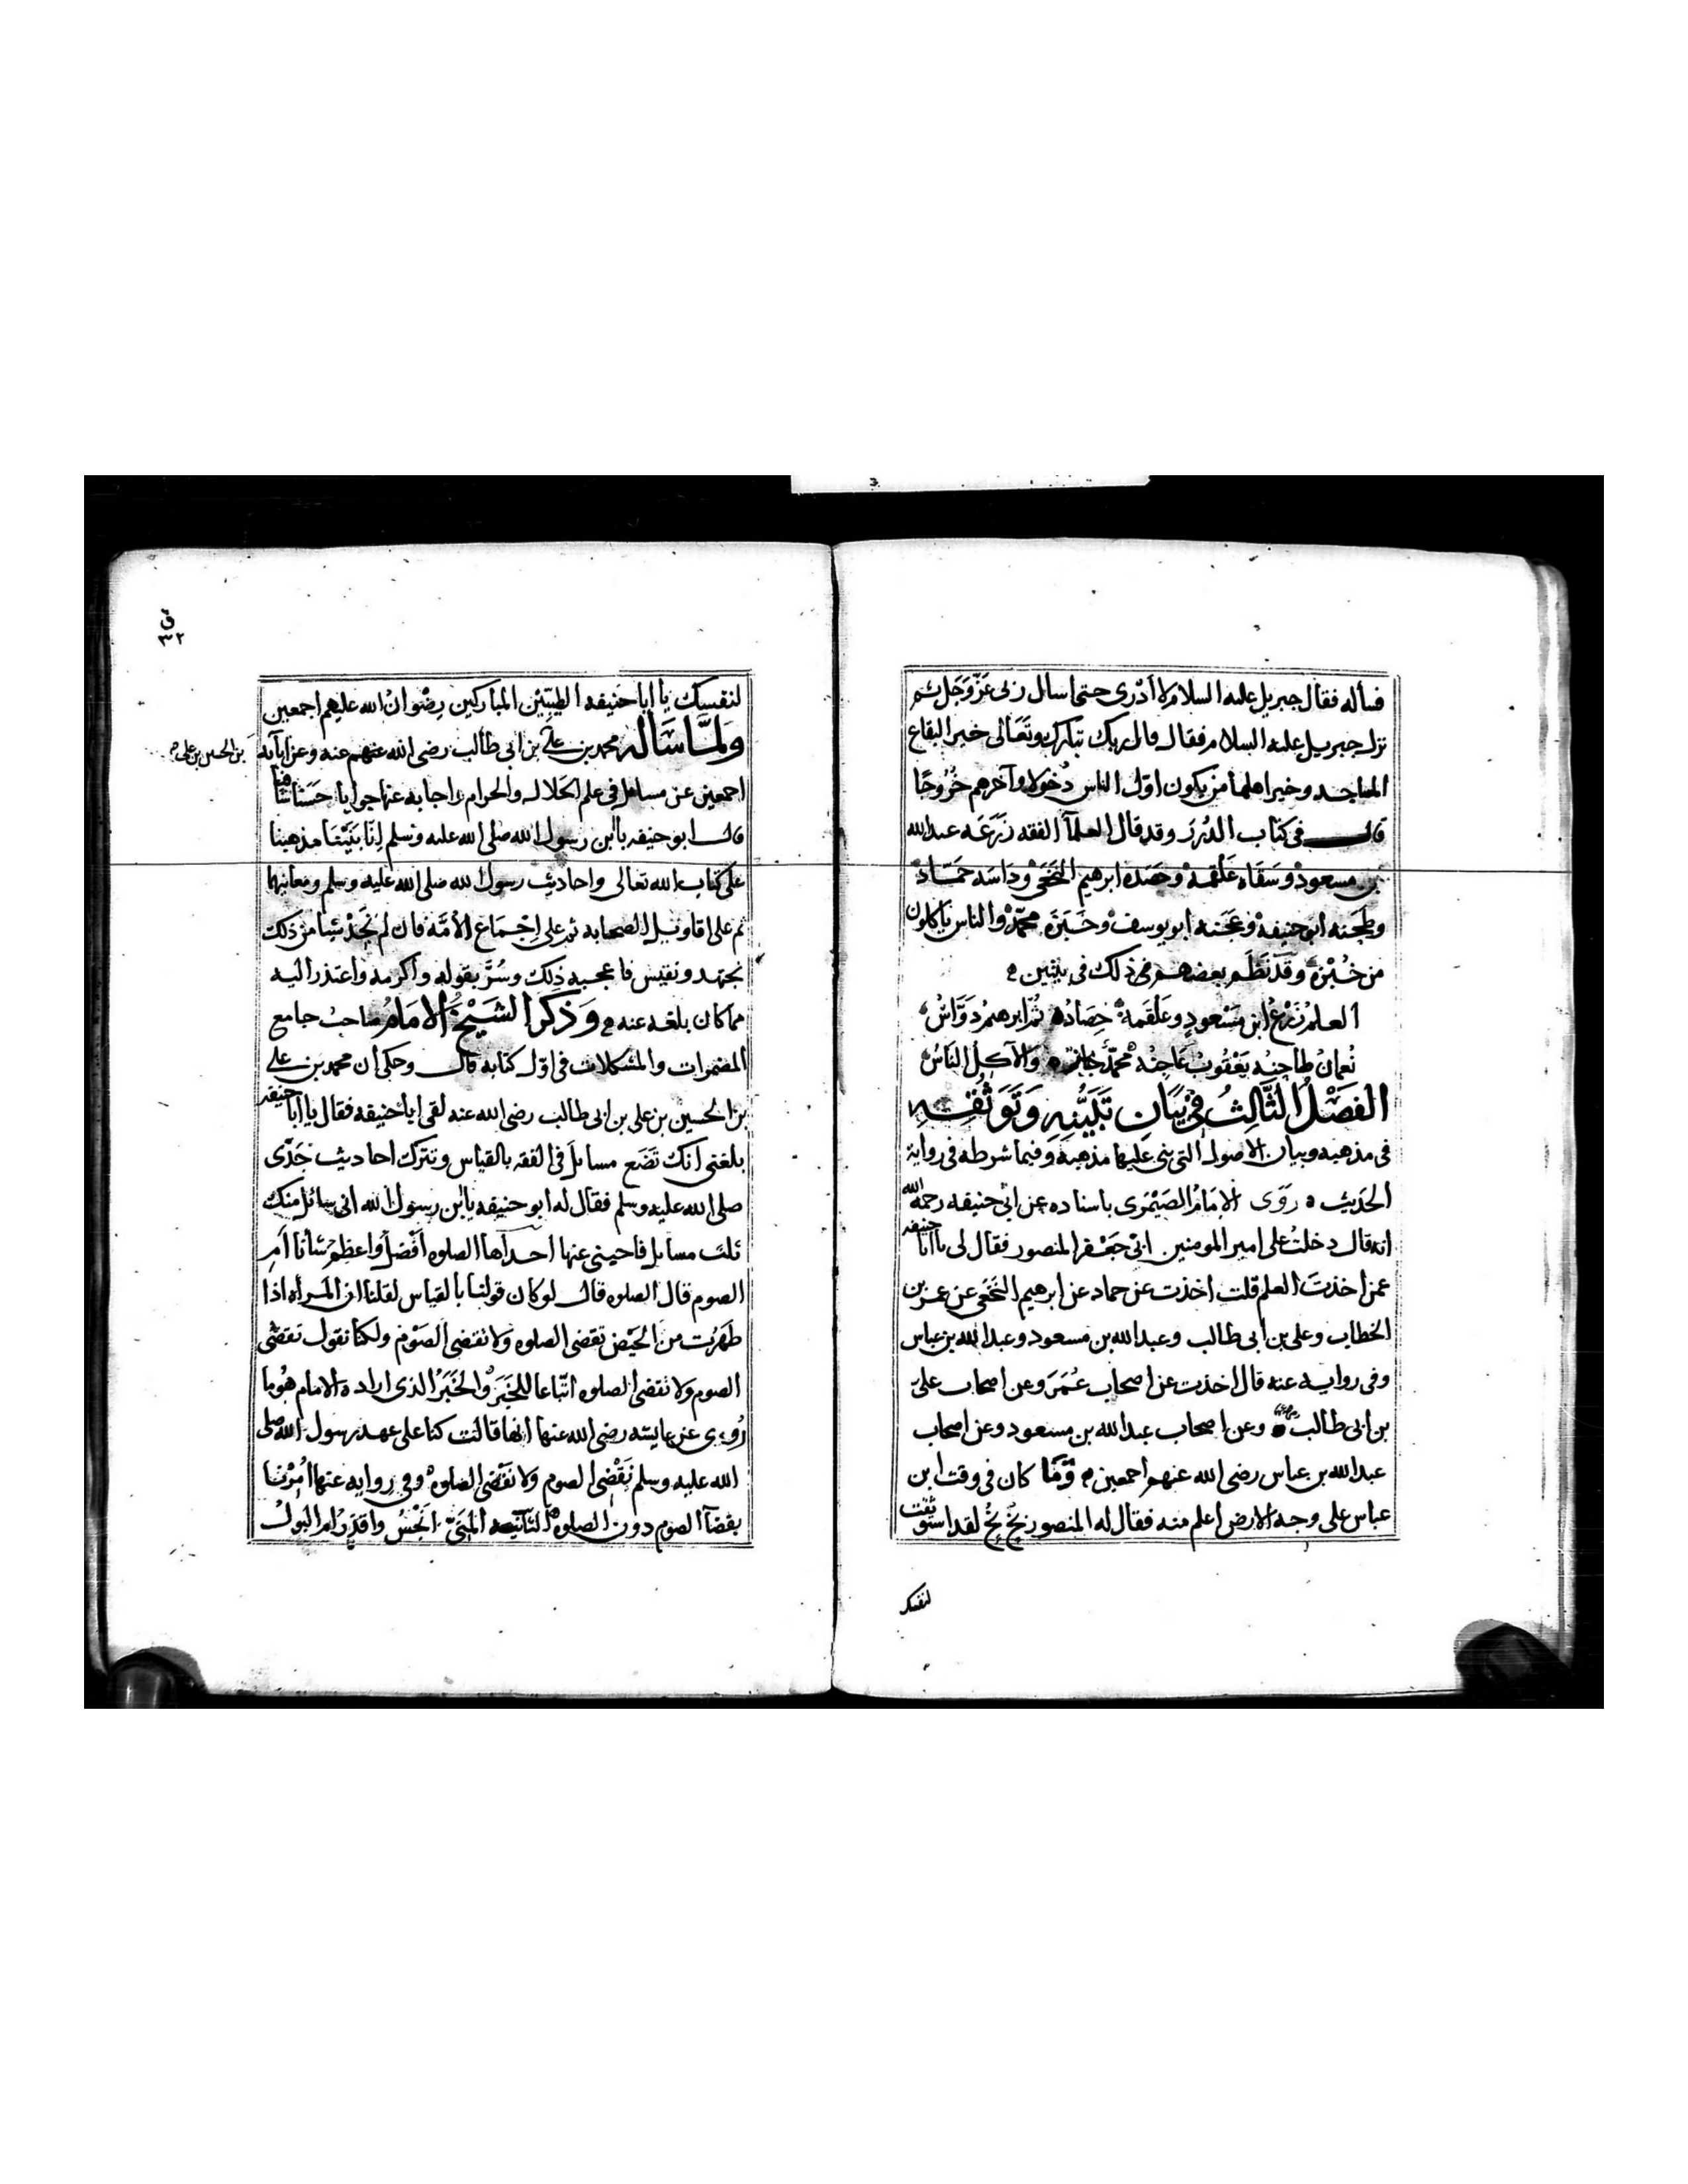 فسأله فقال جبريل عليه السلام لا أدري حتى اسال ربى عَزَّوَجَل ثم
نزل جبريل عليه السلام فقال قال ربك تبارك وتَعَالى خير البقاع
المساجد وخير اهلها من يكون اوّل الناس دُخولا وآخرهم خُرُوجًا
قال في كتاب الدُرَر وقد قال العلمآ الفقه زَرَعَه عبد الله
بن مسعود وسَقَاه عَلقمة وحَصَدَه ابرهيم النخَعي ودَاسَه حَمَّاد
وطحَنه ابو حنيفه وعَجَنه ابو يوسف وخَبَزَه محمّد والناس ياكلون
من خُبْزه وقد نَظَم بعضهم في ذلك في بيتين
العلم زَرْعُ ابن مَسْعود وعَلقمة حَصّادُه ثمّ ابرهيم دَوَّاسُ
نُعمانُ طاحِنُه يَعْقوبُ عَاجِنُه محمّد خابزه والآكل النّاسُ
الفصْلُ الثَّالِثُ في بَيَانِ تَبَيُّنِهِ وَتَوَثُّقِهِ
في مذهبه وبيان الاصول التي بنى عليها مذهبه وفيما شرطه في رواية
الحَدِيث رَوَى الإمَامُ الصَيْمَرى باسناده عن ابى حنيفه رحمه الله
انه قال دخلتُ على امير المومنين ابى جَعْفر المنصور فقال لى يا أبا حنيفه
عمن اخذتَ العلم قلت اخذت عن حماد عن ابرهيم النَخَعي عن عمر بن
الخطاب وعلى بن ابى طالب وعبد الله بن مسعود وعبد الله بن عباس
وفى روايه عنه قال اخذت عن اصحاب عُمَر وعن اصحاب على
بن ابى طالب وعن اصحاب عبد الله بن مسعود وعن اصحاب
عبد الله بن عباس رضى الله عنهم اجمعين وَمَا كان في وقت ابن
عباس على وجه الارض اعلم منه فقال له المنصور بَخْ بَخْ لقد استوثقت
لنفسك
ق
٣٢
لنفسك يا ابا حنيفه الطيبين المباركين رِضْوانُ الله عليهم اجمعين
وَلمَّا سَأَله محمد بن على بن ابى طالب رضى الله عنهم عنه وعن ابآيه
بن الحسين بن على
اجمعين عن مسايل في علم الحَلال والحرام واجابه عنها جوابا حَسَنا شافيا
قال ابو حنيفه يا ابن رسول الله صلى الله عليه وسلم إنّا بَنَيْنا مذهبنا
على كتاب الله تعالى واحاديث رسول الله صلى الله عليه وسلم ومعانيها
ثم على اقاويل الصحابه ثم على إجْمَاع الأمَّة فان لم نَجَد شيئا من ذلك
نجتهد ونقيس فاعجبه ذِلك وسُرَّ بقوله واكرمه واعتذر اليه
مما كان بلغه عنه وَذكَر الشَيْخ الامَامُ صاحبُ جامع
المضمرات والمشكلات في اوّل كتابه قال وحكى أن محمد بن على
بن الحسين بن على بن ابى طالب رضى الله عنه لقى ابا حنيفه فقال يا ابا حنيفه
بلغنى انك تَضَع مسايلَ في الفقه بالقياس وتترك احاديث جَدّى
صلى الله عليه وسلم فقال له ابو حنيفه يا ابن رسول الله انى سائل منك
ثلث مسايل فاجبنى عنها احداها الصلوه أفْضلُ واعظم شأنا أمِ
الصوم قال الصلوه قال لو كان قولنا بالقياس لقلنا ان المرأه اذا
طَهَرُت من الحَيْض تقضى الصلوه ولا تقضى الصَوْم ولكنا نقول تقضى
الصوم ولا تقضى الصلوه اتّباعا للخَبَر والخَبَرُ الذى اراده الامام هُو ما
رُوِى عن عايشه رضى الله عنها انها قالت كنا على عهد رسول الله صلى
الله عليه وسلم نَقْضى الصوم ولا نَقْضى الصلوه وفى روايه عنها أُمِرْنا
بقضآ الصوم دون الصلوه الثانيه المَنىّ انْجَسُ واقذرُ ام البَولُ